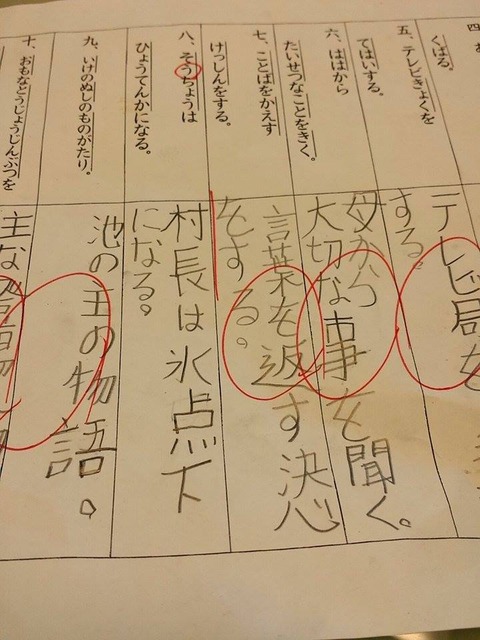 四、
くばる。
五、テレビきょくを
てはいする。
六、ははから
たいせつなことをきく。
七、ことばをかえす
けっしんをする。
八、そうちょうは
ひょうてんかになる。
九、いけのぬしのものがたり。
十、おもなとうじょうじんぶつを
テレビ局を
する。
母から
大切な事を聞く。
言葉を返す決心
をする。
村長は氷点下
になる。
池の主の物語。
主な